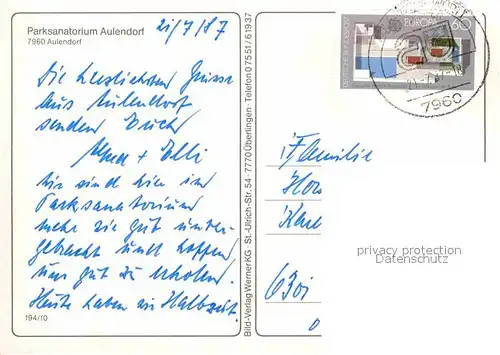 Parksanatorium Aulendorf
7960 Aulendorf
21/7/87
Die herzlichsten Grüsse
aus Aulendorf
senden Euch
+ Elli
Wir sind hier im
Parksanatorium
sehr gut unter-
gebracht und hoffen
uns gut zu erholen.
Heute haben wir Halbzeit
194/10
Bild-Verlag Werner KG · St.-Ulrich-Str. 54 · 7770 Überlingen · Telefon 0 75 51 / 6 19 37
DEUTSCHE BUNDESPOST
EUROPA
60
7960
Familie
630
privacy protection
Datenschutz